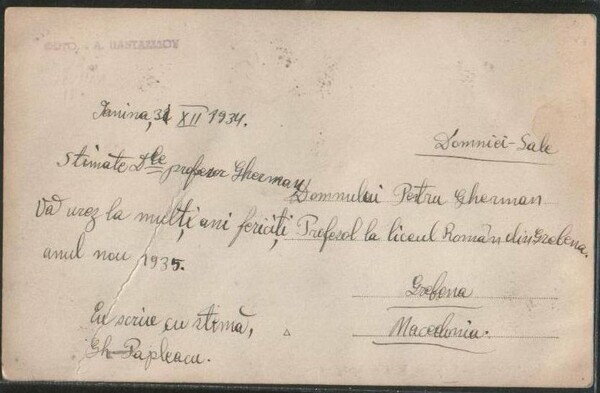 ΦΩΤΟ - Α. ΠΑΝΤΑΖΙΔΟΥ
Janina, 31 XII 1934.
Stimate Dle profesor Gherman
Vă urez la mulți ani fericiți
anul nou 1935.
Eu scriu cu stimă,
Gh. Papleacu.
Domniei-Sale
Domnului Petru Gherman
Profesol la liceul Român din Grebena.
Grebena
Macedonia.